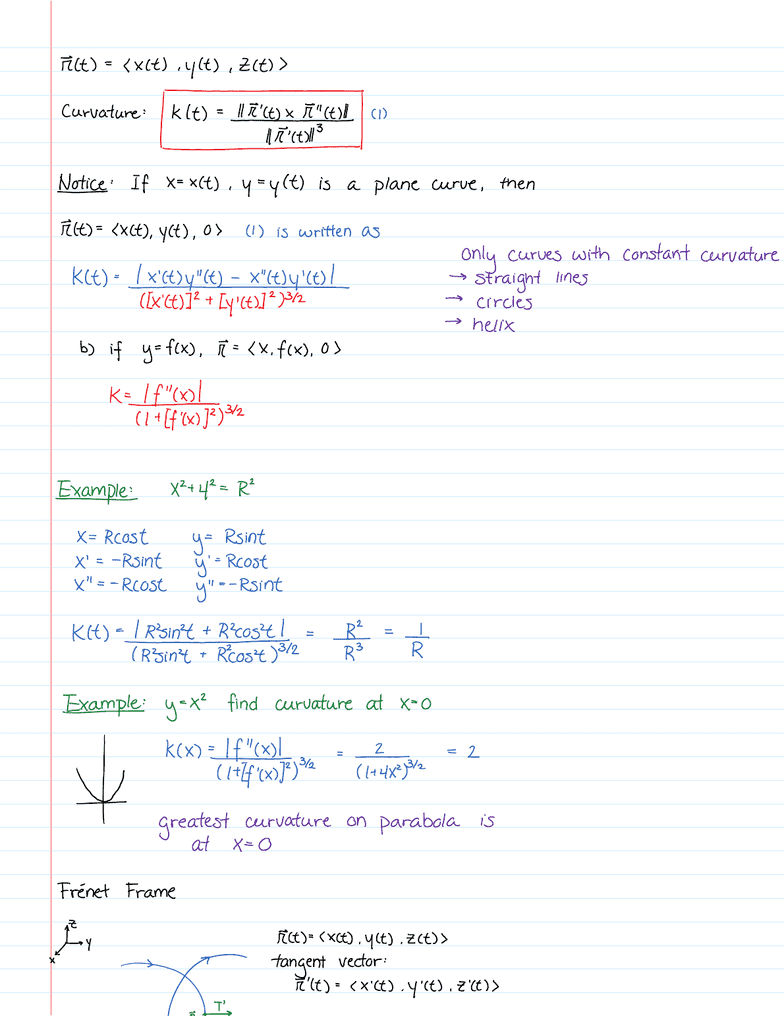 r⃗(t) = ⟨x(t), y(t), z(t)⟩
Curvature: K(t) = ‖r⃗'(t) × r⃗''(t)‖ / ‖r⃗'(t)‖³ (1)
Notice: If x=x(t), y=y(t) is a plane curve, then
r⃗(t) = ⟨x(t), y(t), 0⟩ (1) is written as
K(t) = |x'(t)y''(t) − x''(t)y'(t)| / ([x'(t)]² + [y'(t)]²)^3/2
only curves with constant curvature
→ straight lines
→ circles
→ helix
b) if y=f(x), r⃗ = ⟨x, f(x), 0⟩
K = |f''(x)| / (1+[f'(x)]²)^3/2
Example: x²+y² = R²
x = Rcost y = Rsint
x' = −Rsint y' = Rcost
x'' = −Rcost y'' = −Rsint
K(t) = |R²sin²t + R²cos²t| / (R²sin²t + R²cos²t)^3/2 = R²/R³ = 1/R
Example: y=x² find curvature at x=0
K(x) = |f''(x)| / (1+[f'(x)]²)^3/2 = 2 / (1+4x²)^3/2 = 2
greatest curvature on parabola is
at x=0
Frénet Frame
z
y
x
r⃗(t) = ⟨x(t), y(t), z(t)⟩
tangent vector:
r⃗'(t) = ⟨x'(t), y'(t), z'(t)⟩
T'